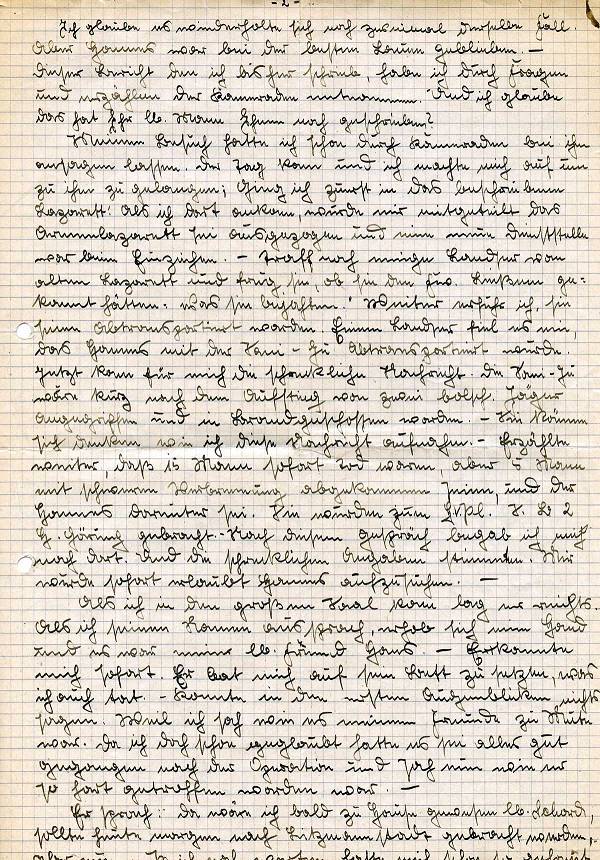 - 2 -
Ich glaube es wiederholte sich noch zweimal derselbe Fall.
Aber Hannes war bei der besten Laune geblieben. —
Dieser Bericht den ich bisher schrieb, habe ich durch Fragen
und erzählen der Kameraden entnommen. Und ich glaube
das hat Ihr lb. Mann Ihnen noch geschrieben?
Meinen Besuch hatte ich schon durch Kameraden bei ihm
ansagen lassen. Der Tag kam und ich machte mich auf um
zu ihm zu gelangen; Ging ich zuerst in das beschriebene
Lazarett: Als ich dort ankam, wurde mir mitgeteilt das
Armeelazarett sei ausgezogen und eine neue Dienststelle
war beim Einziehen. – Traff noch einige Landser vom
alten Lazarett und frug sie, ob sie den Fw. ge-
kannt hätten. Was sie bejahten. Weiter erfuhr ich, sei
seine Abtransportiert worden. Einem Landser fiel es ein,
das Hannes mit der Sani-Ju Abtransportiert wurde.
Jetzt kam für mich die schreckliche Nachricht. Die Sani-Ju
wäre kurz nach dem Aufstieg von zwei bolsch. Jäger
angegriffen und in Brand geschossen worden. – Sie können
sich denken wie ich diese Nachricht aufnahm. – Erzählte
weiter, daß 15 Mann sofort tod waren, aber 5 Mann
mit schweren Verbrennung abgekommen seien, und der
Hannes darunter sei. Sie wurden zum H. Laz 2
H. Göring gebracht. – Nach diesem gespräch begab ich mich
nach dort. Und die schrecklichen Angaben stimmten. Mir
wurde sofort erlaubt Hannes aufzusuchen. —
Als ich in den großen Saal kam lag er rechts.
Als ich seinen Namen aussprach, erhob sich eine Hand
und es war meine lb. Freund Hans. – Erkannte
mich sofort. Er bat mich auf sein Bett zu setzen, was
ich auch tat. – Konnte in den ersten Augenblicken nichts
sagen. Weil ich sah wie es meinem Freunde zu Mute
war. Da ich doch schon geglaubt hatte es sei alles gut
gegangen nach der Operation und sah nun wie er
so hart getroffen worden war. —
Er sprach: da wäre ich bald zu Hause gewesen lb.
sollte heute morgen nach Litzmannstadt gebracht werden,